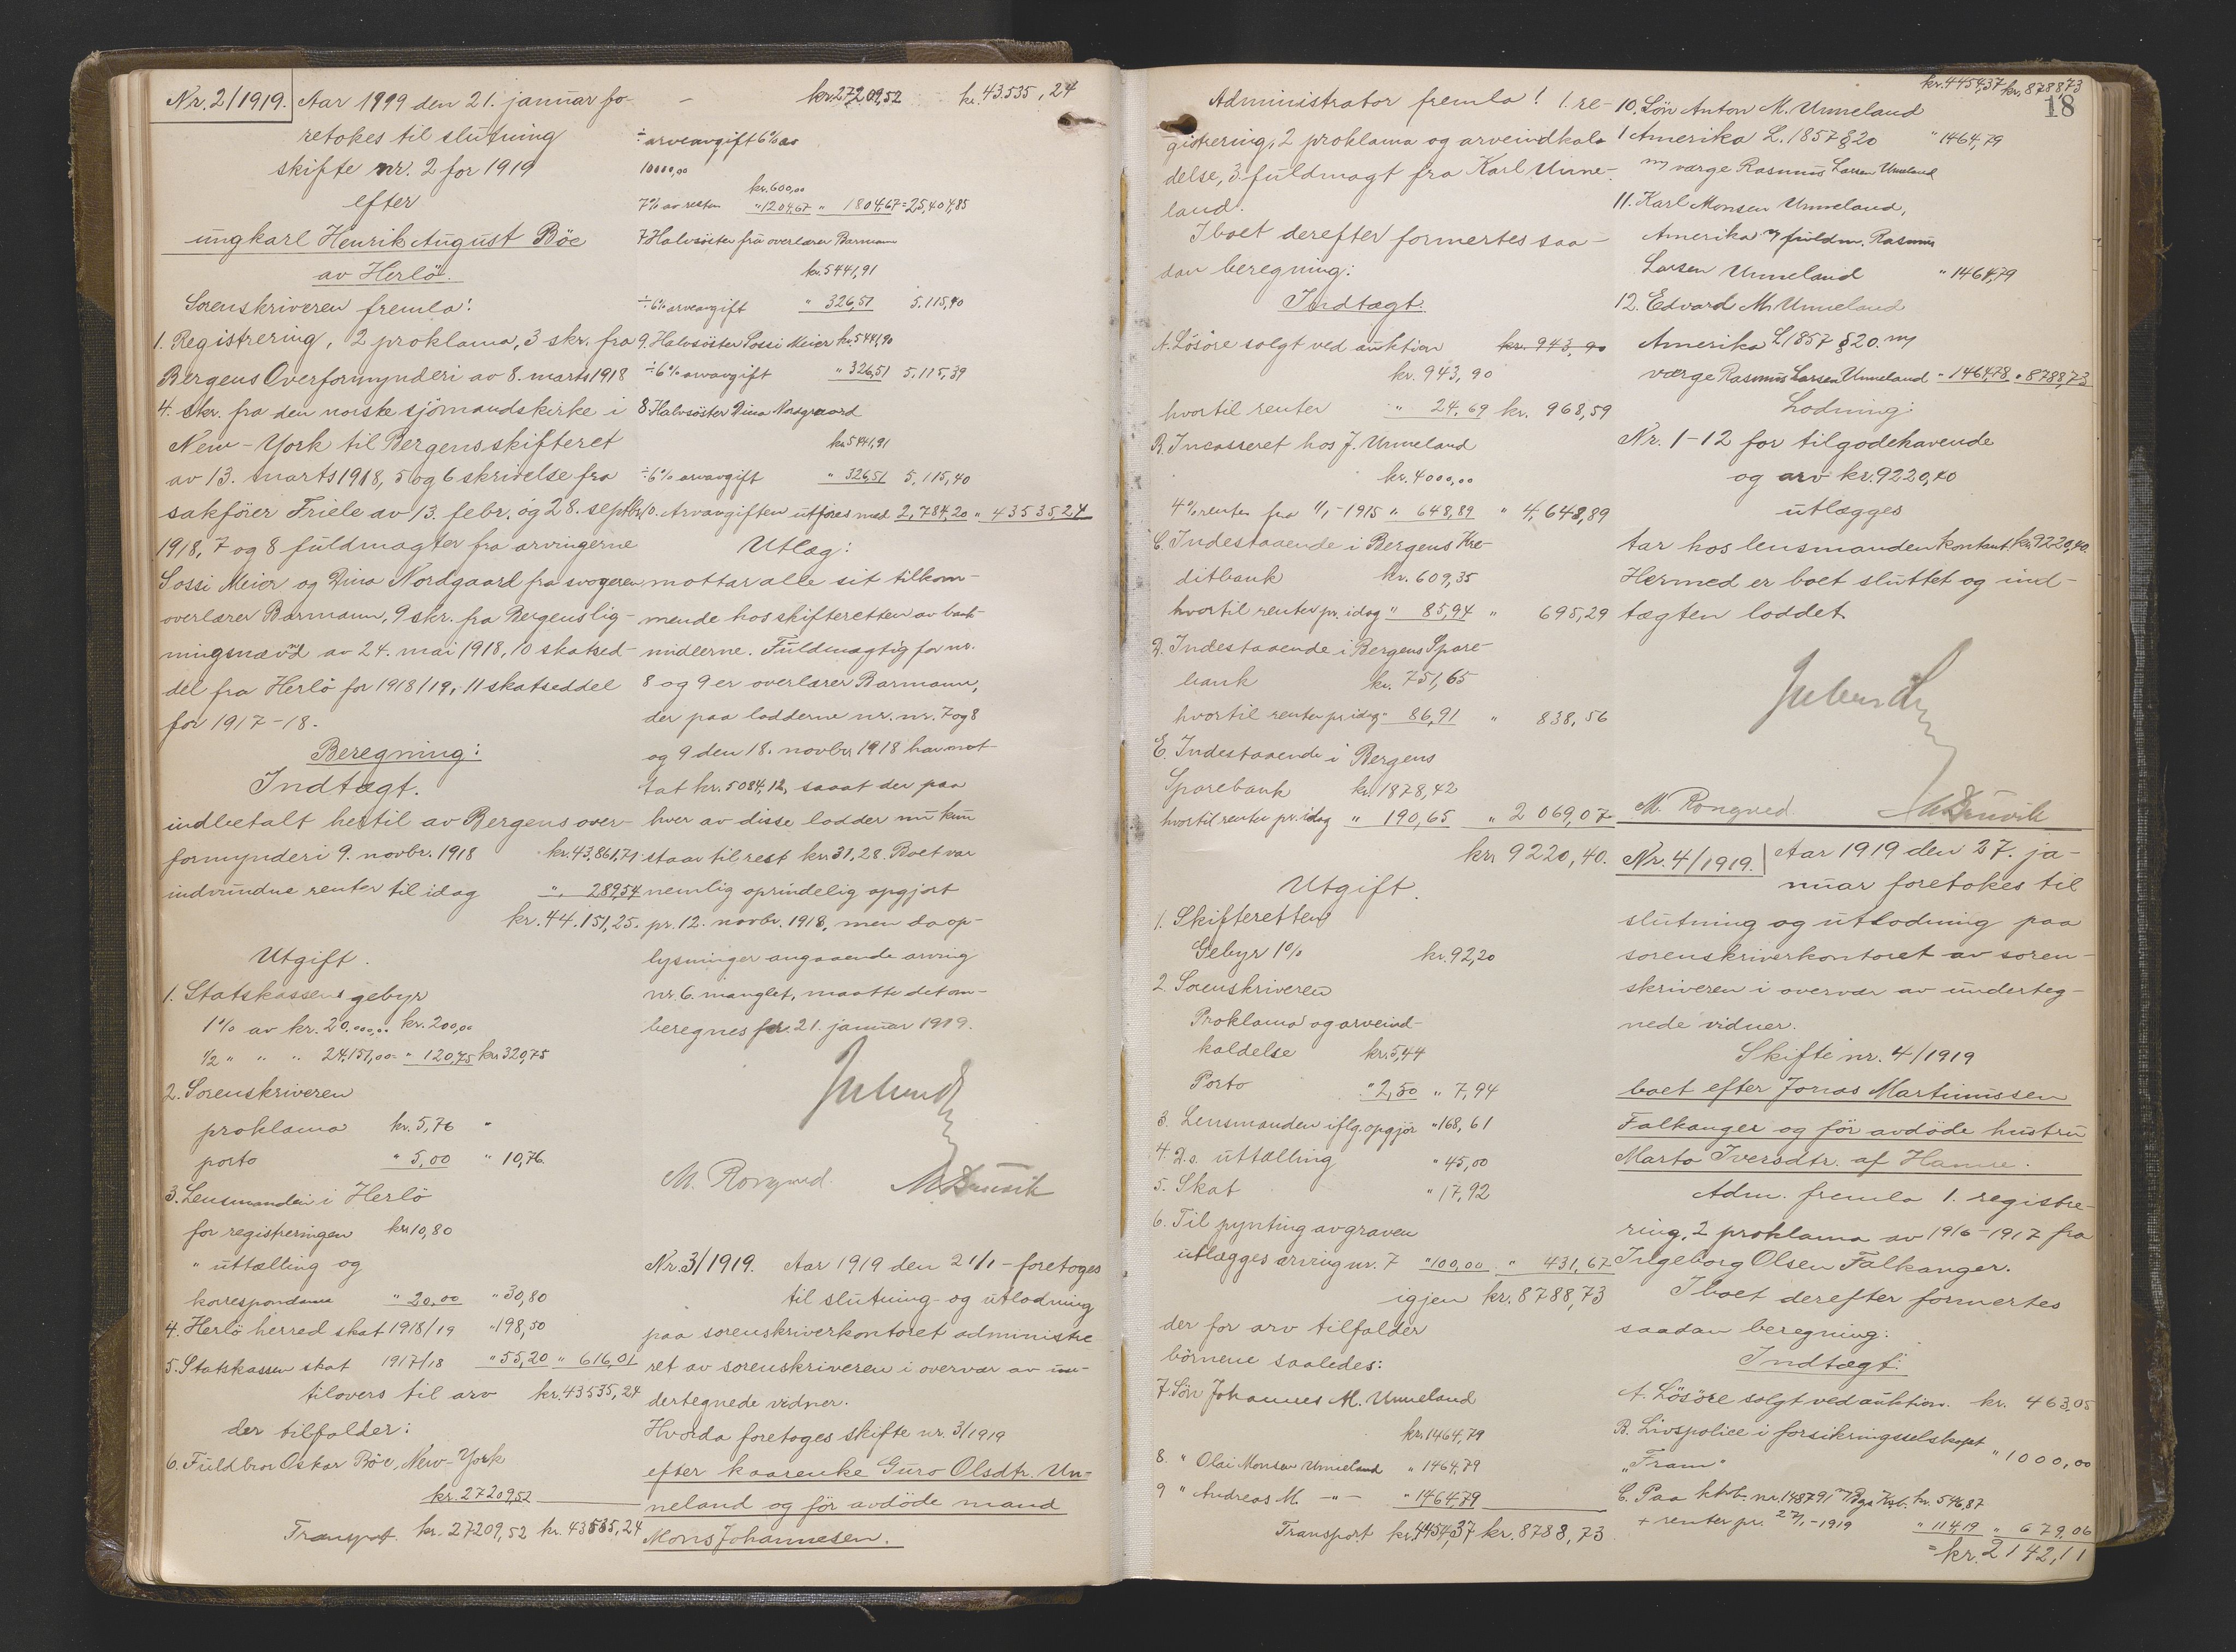 Nr. 2/1919. Aar 1919 den 21. januar fo-
retokes til slutning
skifte nr. 2 for 1919
efter
ungkarl Henrik August Böe
av Herlö.
Sorenskriveren fremla:
1. Registrering, 2 proklama, 3 skr. fra
Bergens Overformynderi av 8. marts 1918
4. skr. fra den norske sjömandskirke i
New-York til Bergens skifteret
av 13. marts 1918, 5 og 6 skrivelse fra
sakförer Friele av 13. febr. og 28. septbr.
1918, 7 og 8 fuldmagter fra arvingerne
Sossi Meier og Dina Nordgaard fra svogeren
overlærer Barmann, 9 skr. fra Bergens lig-
ningsnævnd av 24. mai 1918, 10 skatsed-
del fra Herlö for 1918/19, 11 skatseddel
for 1917-18.
Beregning:
Indtægt.
indbetalt hertil av Bergens over-
formynderi 9. novbr. 1918 kr. 43,861,71
indvundne renter til idag " 289,54
kr. 44.151,25.
Utgift.
1. Statskassens gebyr
1% av kr. 20.000,00 kr. 200,00
1/2 " " " 24.151,00 " 120,75 kr. 320,75
2. Sorenskriveren
proklama kr. 5,76 "
porto " 5,00 " 10,76
3. Lensmanden i Herlö
for registreringen kr. 10,80
" uttælling og
korrespondanse " 20,00 " 30,80
4. Herlö herred skat 1918/19 " 198,50
5. Statskassen skat 1917/18 " 55,20 " 616,01
tilovers til arv kr. 43535,24
der tilfalder:
6. Fuldbror Oskar Böe, New-York
kr. 27209,52
Transport. kr. 27209,52 kr. 43535,24
- kr. 27209,52 kr. 43.535,24
÷ arveavgift 6% av
10000,00
kr. 600,00
7% av resten " 1204,67 " 1804,67 = 25,404,85
7. Halvsöster fru overlærer Barmann
kr. 5441,91
÷ 6% arveavgift " 326,51 5.115,40
9. Halvsöster Sossi Meier kr. 5441,90
÷ 6% arvavgift " 326,51 5.115,39
8. Halvsöster Dina Nordgaard
kr. 5441,91
÷ 6% arvavgift " 326,51 5,115,40
10. Arvavgiften utföres med 2,784,20 " 43535,24
Utlæg:
mottar alle sit tilkom-
mende hos skifteretten av bank-
midlerne. Fuldmægtig for nr.
8 og 9 er overlærer Barmann,
der paa lodderne nr. nr. 7 og 8
og 9 den 18. novbr. 1918 har mot-
tat kr. 5084,12, saaat der paa
hver av disse lodder nu kun
staar til rest kr. 31,28. Boet var
nemlig oprindelig opgjort
pr. 12. novbr. 1918, men da op-
lysninger angaaende arving
nr. 6. manglet, maatte det om-
beregnes pr. 21. januar 1919.
M. Rongved.
Nr. 3/1919. Aar 1919 den 21/1 - foretoges
til slutning og utlodning
paa sorenskriverkontoret administre
ret av sorenskriveren i overvær av un-
dertegnede vidner.
Hvorda foretoges skifte nr. 3/1919
efter kaarenke Guro Olsdtr. Un-
neland og för avdöde mand
Mons Johannesen.
18
Administrator fremla: 1. re-
gistrering, 2 proklama og arveindkal-
delse, 3. fuldmagt fra Karl Unne-
land.
I boet derefter formertes saa-
dan beregning:
Indtægt.
A. Lösöre solgt ved auktion kr. 943,90
kr. 943,90
hvortil renter " 24,69 kr. 968,59
B. Incasseret hos J. Unneland
kr. 4000,00
4% renter fra 1/1-1915 " 648,89 " 4,648,89
C. Indestaaende i Bergens Kre-
ditbank kr. 609,35
hvortil renter pr. idag " 85,94 " 695,29
D. Indestaaende i Bergens Spare-
bank kr. 751,65
hvortil renter pr. idag " 86,91 " 838,56
E. Indestaaende i Bergens
Sparebank kr. 1878,42
hvortil renter pr. idag " 190,65 " 2069,07
kr. 9220,40.
Utgift.
1. Skifteretten
Gebyr 1% kr. 92,20
2. Sorenskriveren
Proklama og arveind-
kaldelse kr. 5,44
Porto " 2,50 " 7,94
3. Lensmanden iflg. opgjör " 168,61
4. D.s. uttælling " 45,00
5. Skat " 17,92
6. Til pynting av graven
utlægges arving nr. 7 " 100,00 " 431,67
igjen kr. 8788,73
der for arv tilfalder
börnene saaledes:
7. Sön Johannes M. Unneland
kr. 1464,79
8. " Olai Monsen Unneland " 1464,79
9 " Andreas M. -"- " 1464,79
Transport kr. 4454,37 kr. 8788,73
kr. 4454,37 kr. 8788,73
10. Sön Anton M. Unneland
i Amerika L. 1857 § 20 " 1464,79
m/ værge Rasmus Larsen Unneland
11. Karl Monsen Unneland,
Amerika m/ fuldm. Rasmus
Larsen Unneland " 1464,79
12. Edvard M. Unneland
Amerika L 1857 § 20. m/
værge Rasmus Larsen Unneland " 1464,78 " 8788,73
Lodning:
Nr. 1-12 for tilgodehavende
og arv kr. 9220,40
utlægges
tar hos lensmanden kontant kr. 9220,40.
Hermed er boet sluttet og ind-
tægten loddet.
M. Rongved.
Nr. 4/1919. Aar 1919 den 27. ja-
nuar foretokes til
slutning og utlodning paa
sorenskriverkontoret av soren-
skriveren i overvær av underteg-
nede vidner.
Skifte nr. 4/1919
boet efter Jonas Martinussen
Falkanger og för avdöde hustru
Marta Iversdtr. af Hamre.
Adm. fremla 1. registre-
ring, 2 proklama av 1916-1917 fra
Ingeborg Olsen Falkanger.
I boet derefter formertes
saadan beregning:
Indtægt:
A. Lösöre solgt ved auktion. kr. 463,05
B. Livspolice i forsikringsselskapet
"Fram" " 1000,00
C. Paa kktb. nr. 148791 kr. 546,87
+ renter pr. 27/1-1919 " 114,19 " 679,06
= kr. 2142,11